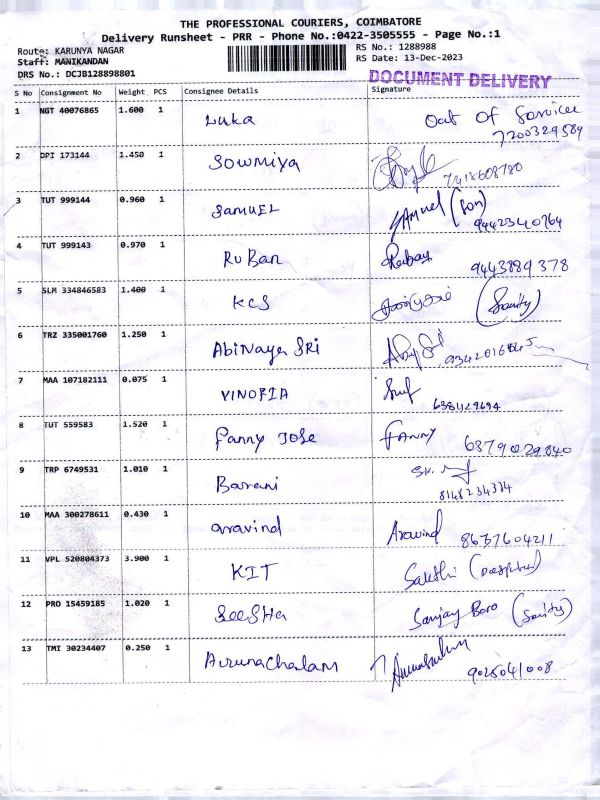 THE PROFESSIONAL COURIERS, COIMBATORE
Delivery Runsheet - PRR - Phone No.:0422-3505555 - Page No.:1
Route: KARUNYA NAGAR RS No.: 1288988
Staff: MANIKANDAN RS Date: 13-Dec-2023
DRS No.: DCJB128898801 DOCUMENT DELIVERY
S No Consignment No Weight PCS Consignee Details Signature
1 NGT 40076865 1.600 1 Luka Out of Service
7200329589
2 DPI 173144 1.450 1 Sowmiya 7418608780
3 TUT 999144 0.960 1 Samuel Samuel (Son)
9442340764
4 TUT 999143 0.970 1 Ruban Ruban
9443889378
5 SLM 334846583 1.400 1 KCS (Sanity)
6 TRZ 335001760 1.250 1 Abinaya SRI
7 MAA 107182111 0.075 1 VINOFIA
6381429694
8 TUT 559583 1.520 1 Fanny Jose FANNY 6879029840
9 TRP 6749531 1.010 1 Barani
8148234334
10 MAA 300278611 0.430 1 aravind Aravind 8637604211
11 VPL 520804373 3.900 1 KIT Sakthi
12 PRO 15459185 1.020 1 SeeSHa Sanjay Boro (Sanity)
13 TMI 30234407 0.250 1 Arunachalam 9025041008